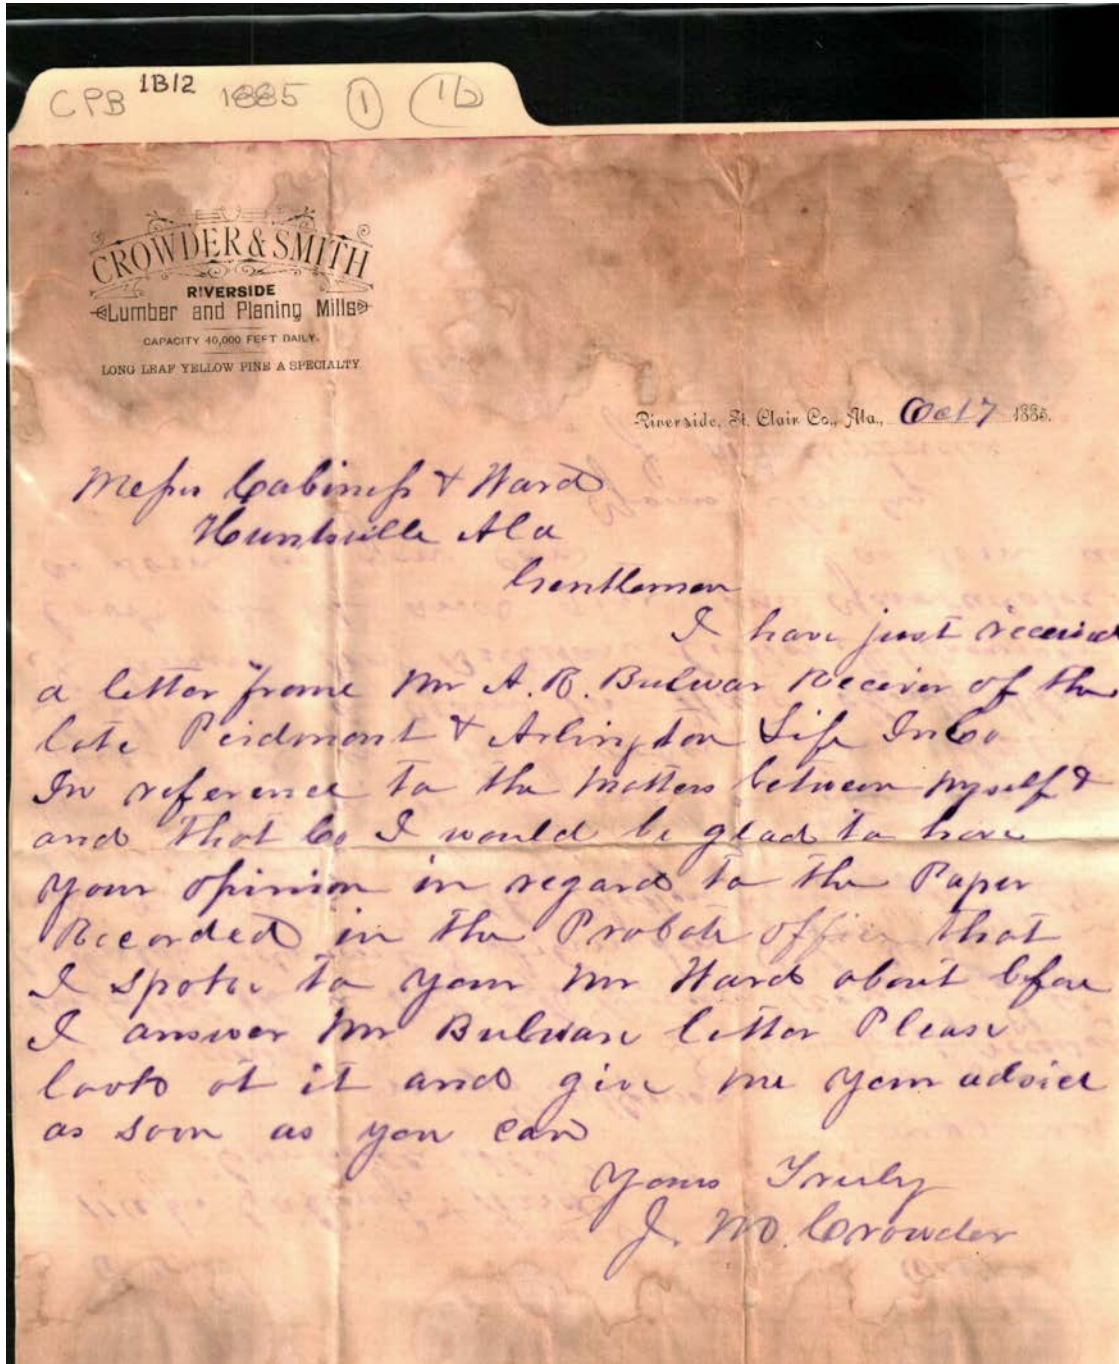 CPB 1B12 1885 1 1b
CROWDER & SMITH
RIVERSIDE
Lumber and Planing Mills
CAPACITY 40,000 FEET DAILY.
LONG LEAF YELLOW PINE A SPECIALTY.
Riverside, St. Clair Co., Ala., Oct 7 1885.
Messrs Cabiness & Ward
Huntsville Ala
Gentlemen
I have just received
a letter frome Mr A. R. Bulwar Receiver of the
late Peidmont & Arlington Life In Co
In reference to the matters between myself &
and that Co I would be glad to have
your opinion in regard to the Paper
Recorded in the Probate office that
I spoke to your Mr Ward about before
I answer Mr Bulwars letter Please
look at it and give me your advice
as soon as you can
Yours Truly
J. M. Crowder